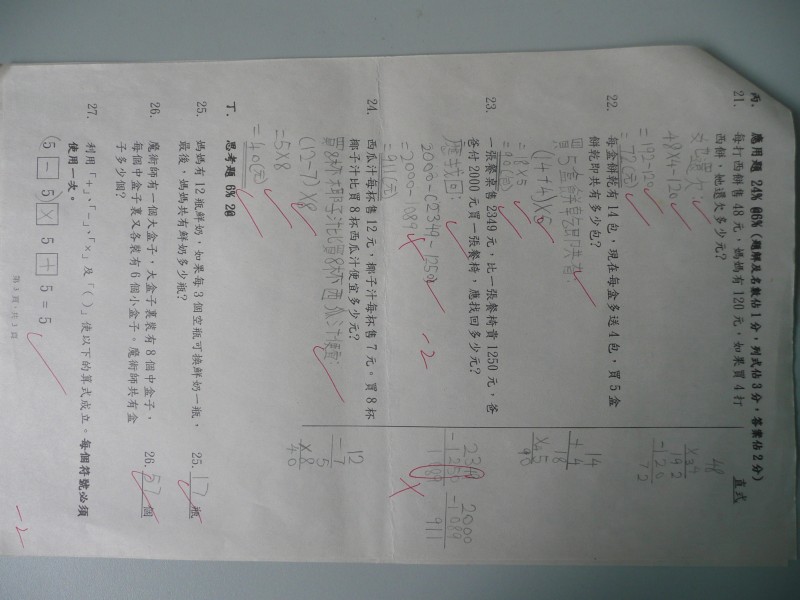 丙. 應用題 24% 66% (題解及名數佔1分，列式佔3分，答案佔2分)
直式
21. 每打西餅售 48 元，媽媽有 120 元，如果買 4 打
西餅，她還欠多少元？
她還欠:
48X4-120
=192-120
=72(元)
48
X 4
192
-120
72
22. 每盒餅乾有 14 包，現在每盒多送 4 包，買 5 盒
餅乾即共有多少包？
買5盒餅乾即共有:
(14+4)X5
=18X5
=90(包)
14
+ 4
18
X 5
90
23. 一張餐桌售 2349 元，比一張餐椅貴 1250 元，爸
爸付 2000 元買一張餐椅，應找回多少元？
應找回:
2000-(2349-1250)
=2000-1089
=911(元)
-2
2349
-1250
1089
2000
-1089
911
24. 西瓜汁每杯售 12 元，椰子汁每杯售 7 元。買 8 杯
椰子汁比買 8 杯西瓜汁便宜多少元？
買8杯椰子汁比買8杯西瓜汁便宜:
(12-7)X8
=5X8
=40(元)
12
- 7
5
X 8
40
丁. 思考題 6%
25. 媽媽有 12 瓶鮮奶，如果每 3 個空瓶可換鮮奶一瓶，
最後，媽媽共有鮮奶多少瓶？
25. 17 瓶
26. 魔術師有一個大盒子，大盒子裏裝有 8 個中盒子，
每個中盒子裏又各裝有 6 個小盒子。魔術師共有盒
子多少個？
26. 57 個
27. 利用「+」、「-」、「×」及「( )」使以下的算式成立。每個符號必須
使用一次。
(5 - 5) X 5 + 5 = 5
-2
第 3 頁，共 3 頁